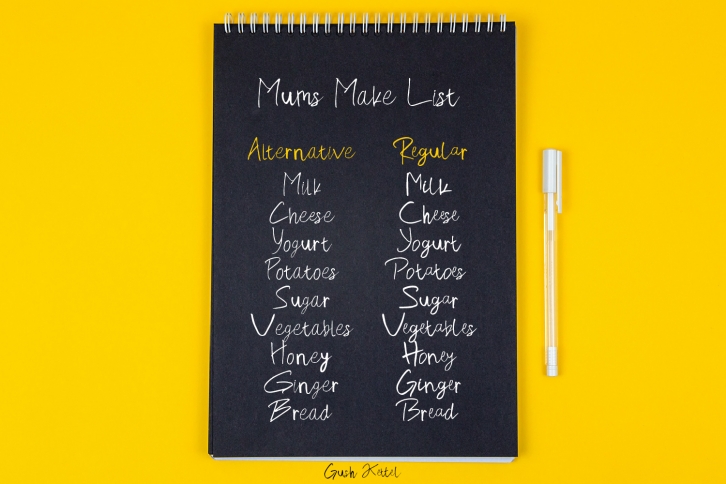 Mums Make List
Alternative Regular
Milk Milk
Cheese Cheese
Yogurt Yogurt
Potatoes Potatoes
Sugar Sugar
Vegetables Vegetables
Honey Honey
Ginger Ginger
Bread Bread
Gush